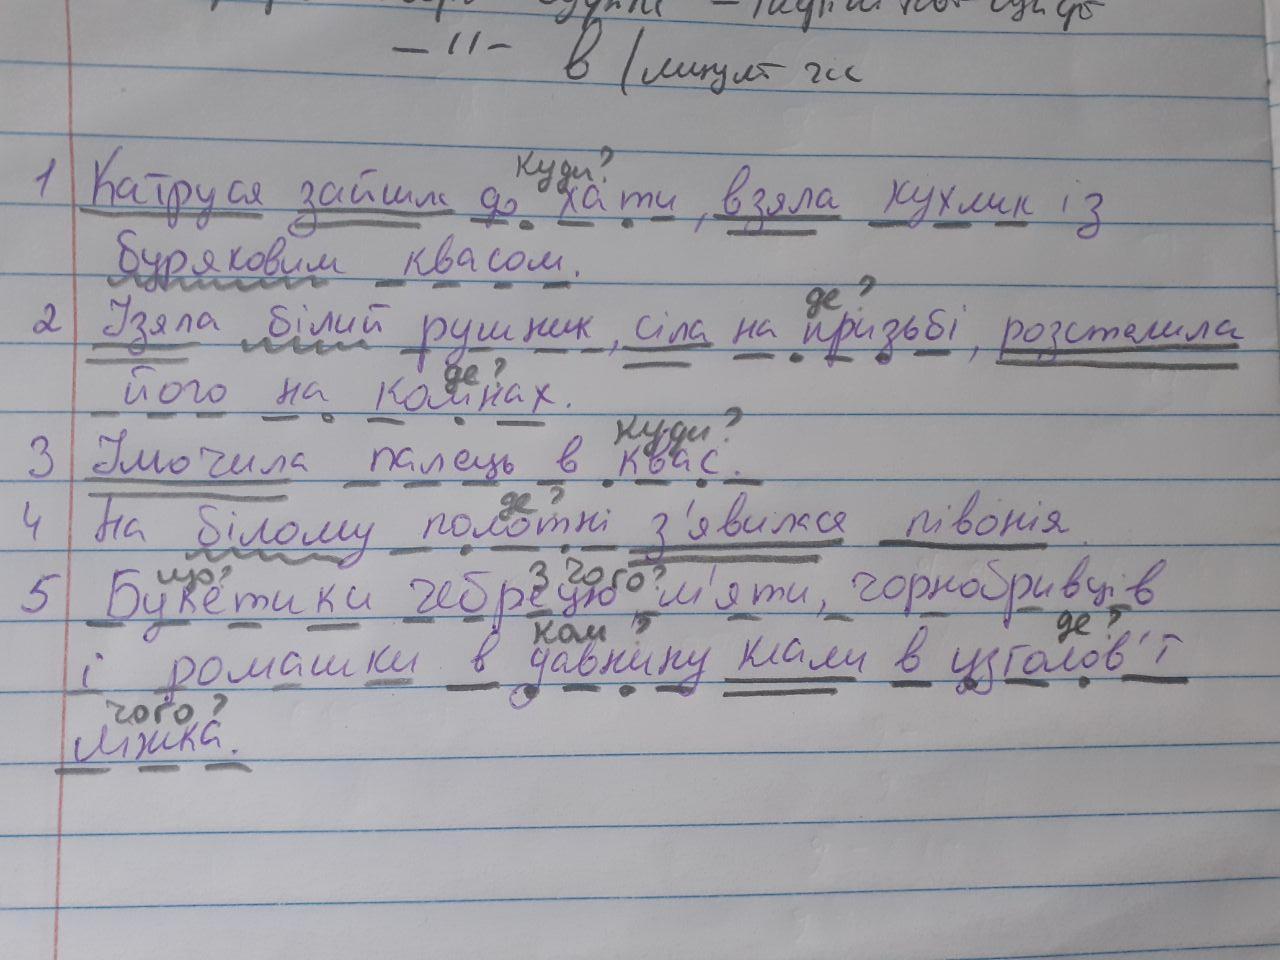 - 11 - в / минулт час
куди?
1 Катруся зайшла до хати, взяла кухлик із
буряковим квасом.
де?
2 Узяла білий рушник, сіла на призьбі, розстелила
де?
його на колінах.
куди?
3 Умочила палець в квас.
де?
4 На білому полотні з'явилася півонія
що? з чого?
5 Букетики чебрецю м'яти, чорнобривців
де?
і ромашки в давнину клали в узголов'ї
чого?
ліжка.